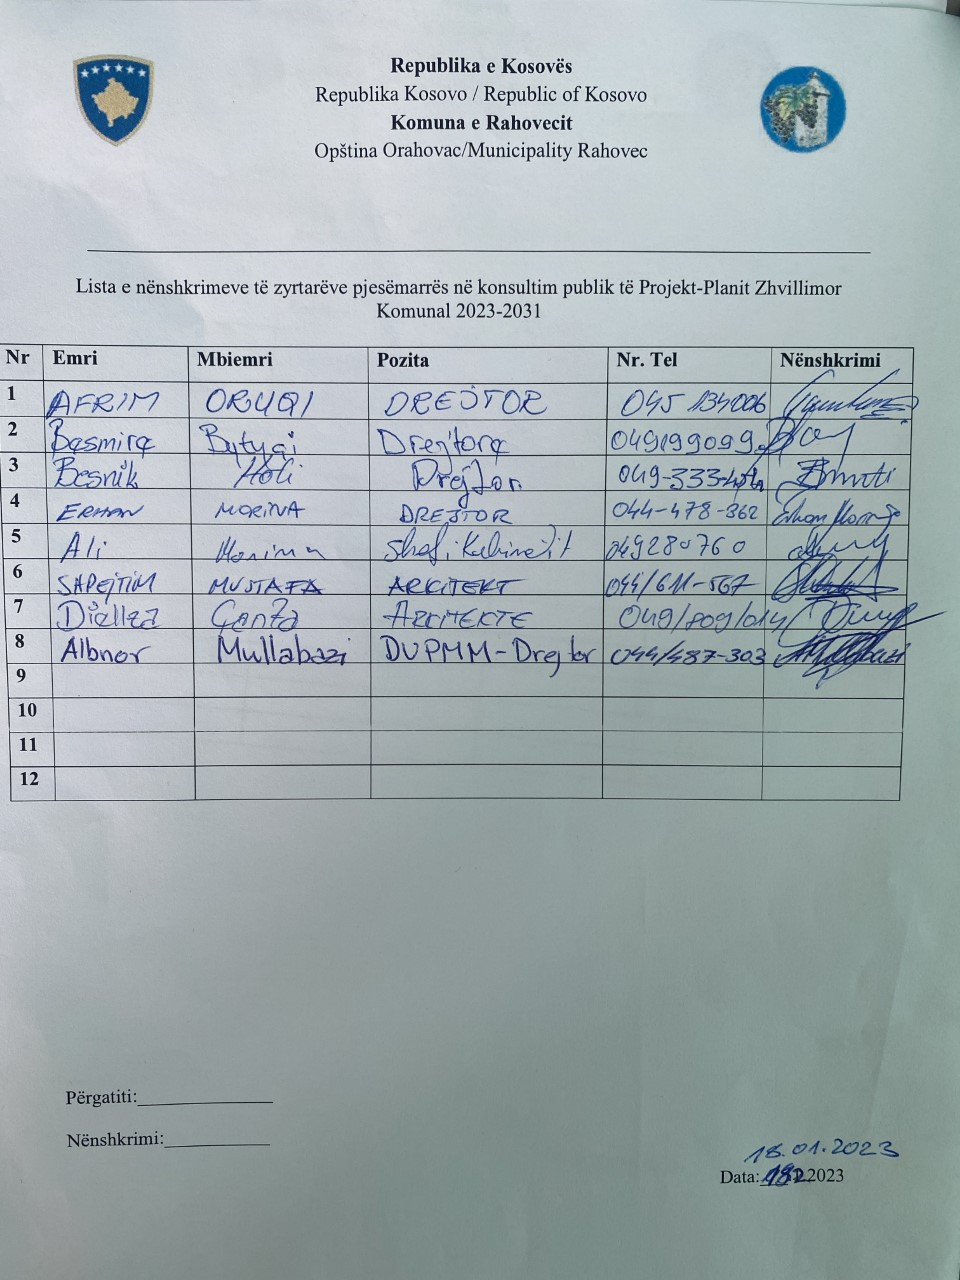 Republika e Kosovës
Republika Kosovo / Republic of Kosovo
Komuna e Rahovecit
Opština Orahovac/Municipality Rahovec
Lista e nënshkrimeve të zyrtarëve pjesëmarrës në konsultim publik të Projekt-Planit Zhvillimor
Komunal 2023-2031
Nr Emri Mbiemri Pozita Nr. Tel Nënshkrimi
1 AFRIM ORUQI DREJTOR 045 134006
2 Basmira Bytyqi Drejtora
3 Besnik Hoti Drejtor
4 ERHAN MORINA DREJTOR 044-478-362
5 Ali Shefi Kabinetit 049280760
6 SHPEJTIM MUSTAFA ARKITEKT 044/611-567
7 Diellza Canta ARKITEKTE
8 Albnor Mullabazi DUPMM-Drejtor 044/487-303
9
10
11
12
Përgatiti:
Nënshkrimi:
18.01.2023
Data: 2023